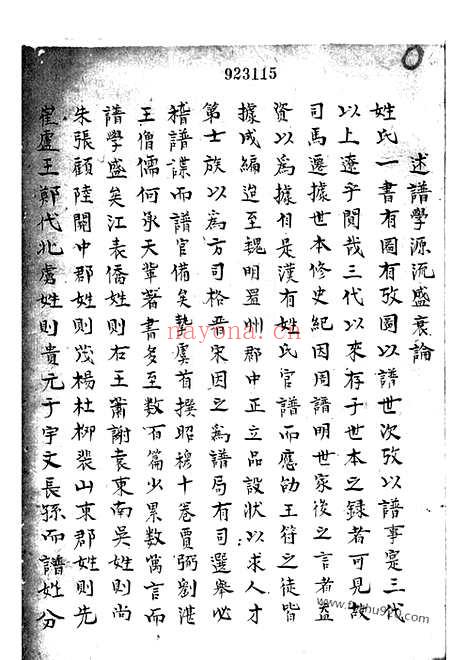 923115
述譜學源流盛衰論
姓氏一書有圖有攷圖以譜世次攷以譜事寔三代
以上遼乎閴哉三代以來存于世本之録者可見故
司馬遷據世本修史紀因周譜明世家後之言者益
資以爲據但是漢有姓氏官譜而應劭王符之徒皆
據成編迨至魏明置州郡中正立品設狀以求人才
第士族以爲方司格晋宋因之爲譜局有司選舉必
稽譜諜而譜官備矣摯虞首撰昭穆十卷賈弼劉湛
王僧儒何承天輩著書多至數百篇少累數萬言而
譜學盛矣江表僑姓則右王蕭謝袁東南吳姓則尚
朱張顧陸關中郡姓則茂楊杜柳裴山東郡姓則先
崔盧王鄭代北虜姓則貴元于宇文長孫而譜姓分
nayona.cn